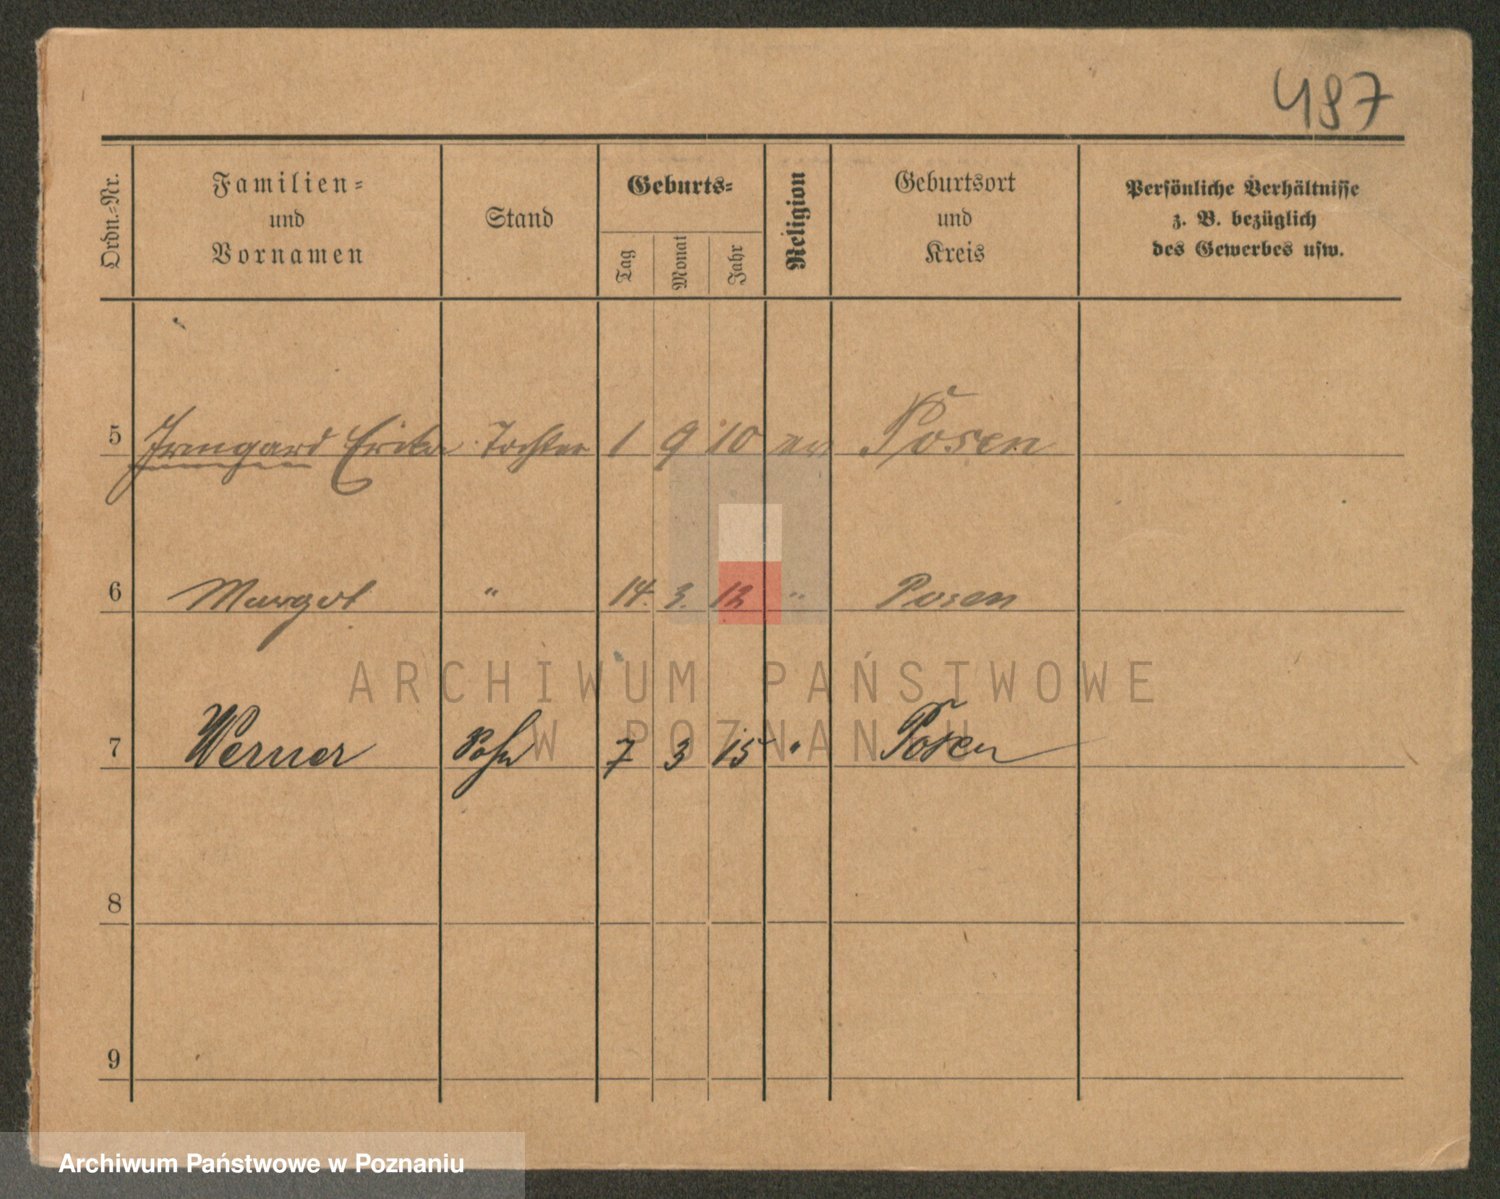 487
Ordn.-Nr.
Familien-
und
Vornamen
Stand
Geburts-
Tag
Monat
Jahr
Religion
Geburtsort
und
Kreis
Persönliche Verhältnisse
z. B. bezüglich
des Gewerbes usw.
5 Irmgard Erika Tochter 1 9 10 ev Posen
6 Margot " 14. 3. 12 " Posen
ARCHIWUM PAŃSTWOWE
W POZNANIU
7 Werner Sohn 7 3 15 " Posen
8
9
Archiwum Państwowe w Poznaniu